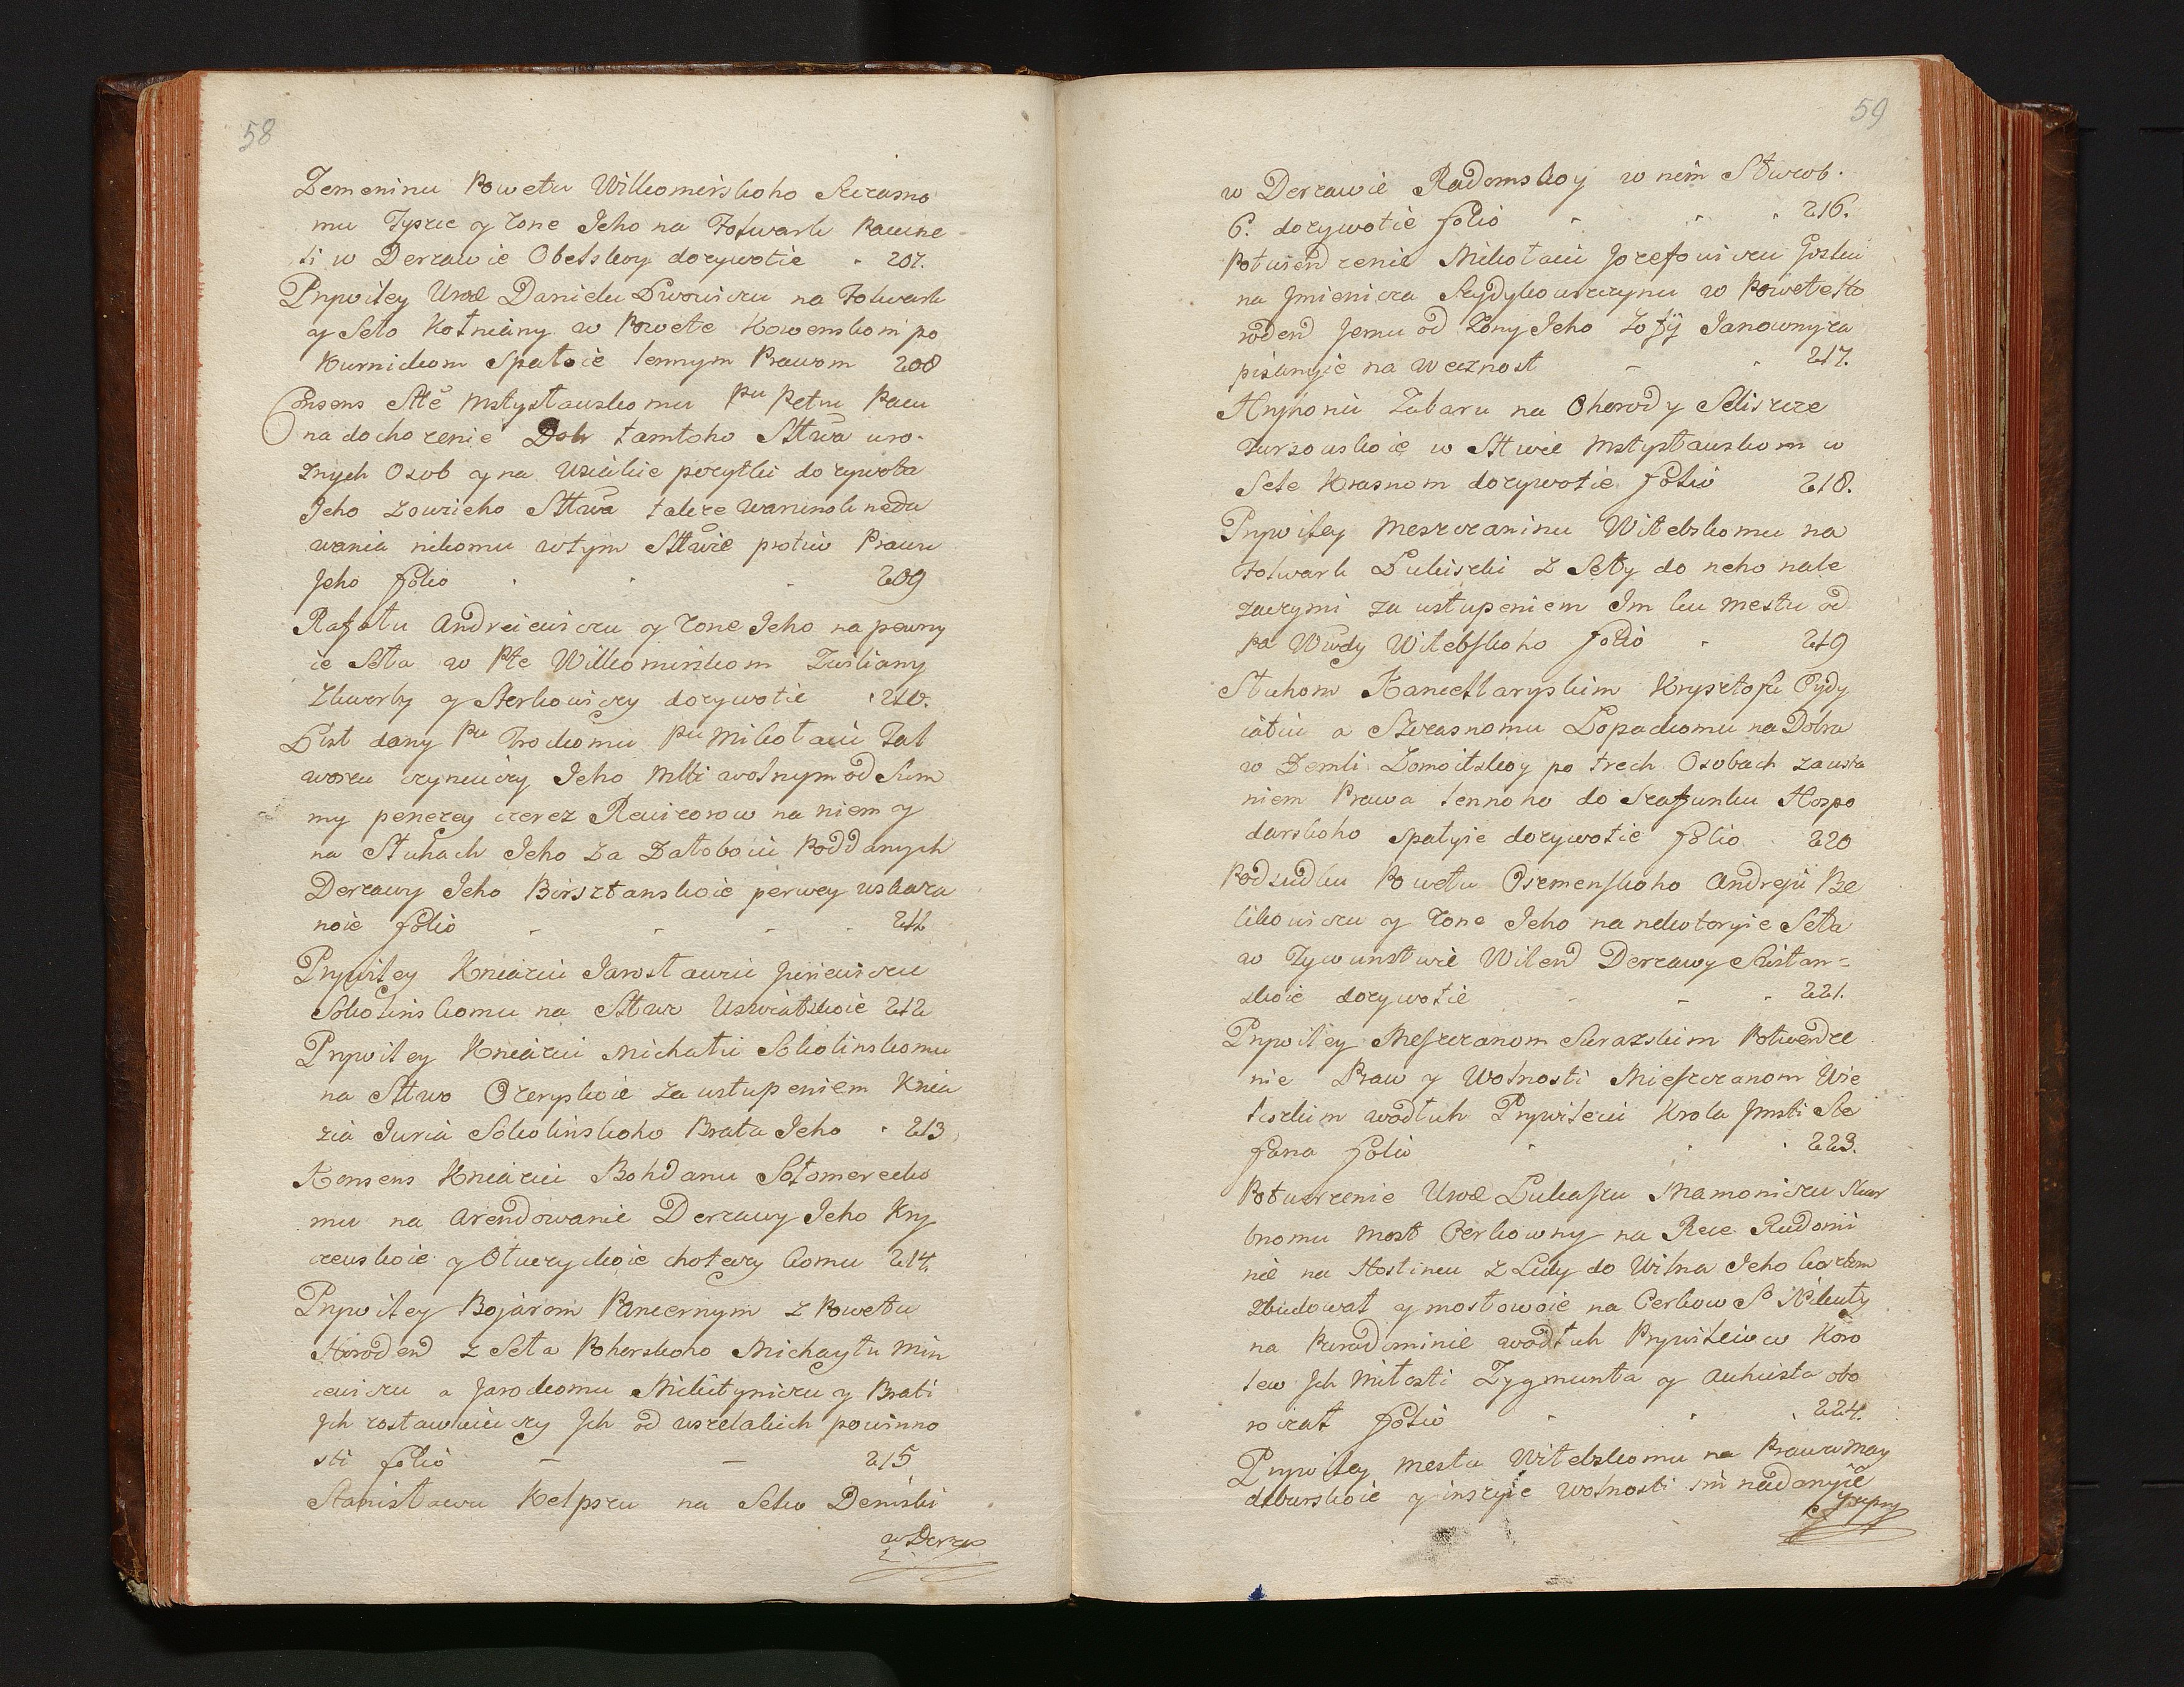 58
Zemeninu Powetu Wilkomirskoho Szczasno
mu Tyszce y Zone Jeho na Folwark Pawine
li w Derzawie Obelskoy dozywotie 207.
Prywiley Urod Danielu Lwowiczu na Folwark
y Seło Kotniany w Powete Kowenskom po
Kurnickom Spałoie lennym Prawom 208
Consens Sttě Mstysławskomu Pu Petru Pacu
na dochozenie Dobr tamtoho Sttwa uro-
znych Osob y na Uziĉie pozytki do zywota
Jeho zowsieho Sttwa takze Warunok neda
wania nikomu wtym Sttwie protiw Prawu
Jeho folio 209
Rafału Andreiewiczu y Zone Jeho na pewny
ie Seła w Pte Wilkomirskom Zwiliany
Zkworby y Sterkowiczy dozywotie 210.
List dany Pu Trockomu Pu Mikołaiu Tal
woszu czyniuczy Jeho Mlti wolnym od Sum
my penezey czerez Rewizorow na niem y
na Słuhach Jeho za Załoboiu Poddanych
Derzawy Jeho Birsztanskoie perwey uskaza
noie folio 211
Prywiley Kniaziu Jarosławu Jurewiczu
Sokolinskomu na Sttwo Uswiatskoie 212
Prywiley Kniaziu Michału Sokolinskomu
na Sttwo Ozeryskoie za ustupeniem Knia
zia Juria Sokolinskoho Brata Jeho 213
Konsens Kniaziu Bohdanu Sołomerecko
mu na Arendowanie Derzawy Jeho Kry
czewskoie y Oluczyckoie chotewzy komu 214.
Prywiley Bojarom Pancernym z Powetu
Horoden z Seła Pohorskoho Michayłu Min
cewiczu a Jarockomu Mikityniczu y Brati
Jch zostawuiuczy Jch od uszelakich powinno
sti folio 215
Stanisławu Kełpszu na Selco Deniski
w Derza
59
w Derzawie Radomskoy w nem Słuzob.
6. dozywotie folio 216.
Potwierdzenie Mikołaiu Jozefowiczu Gosku
na Jmienicza Szydykowszczynu w Powete Ho
roden Jemu od Zony Jeho Zofij Janowny za
pisanyie na Wecznost 217.
Hryhoriu Zubaru na Ohorody Seliszcze
Turzowskoie w Sttwie Mstysławskom w
Sele Krasnom dozywotie folio 218.
Prywiley Meszczaninu Witebskomu na
Folwark Lukiszki z Seły do neho nale
zaczymi za ustupeniem Im ku mestu od
Pa Wwdy Witebskoho folio 219
Słuhom Kancellaryskim Krysztofu Dydy
iatiu a Szczasnomu Lopackomu na Dobra
w Zemli Zomoitskoy po trech Osobach za usta
niem Prawa lennoho do Szafunku Hospo
darskoho spałyie dozywotie folio 220
Podsudku Powetu Oszmenskoho Andreju Be
likowiczu y Zone Jeho na nekotoryie Seła
w Tywunstwie Wilend Derzawy Szistan-
skoie dozywotie 221.
Prywiley Meszczanom Surazskim Potwerdze
nie Praw y Wolnosti Mieszczanom Wie
liszkim wodłuh Prywileiu Krola Jmsti Ste
fana folio 223.
Potwerzenie Urod Lukaszu Mamoniczu Skar
bnomu Most Cerkowny na Rece Rudomi
nie na Hostincu z Lidy do Wilna Jeho kosztom
zbudował y mostowoie na Cerkow S° Nikuty
na Rurodominie wodłuh Prywileiow Koro
lew Jch Miłosti Zygmunta y Auhusta obo
roczał folio 224.
Prywiley Mesta Witebskomu na Prawa May
dtburskoie y inszyie Wolnosti im nadanyie
y prz